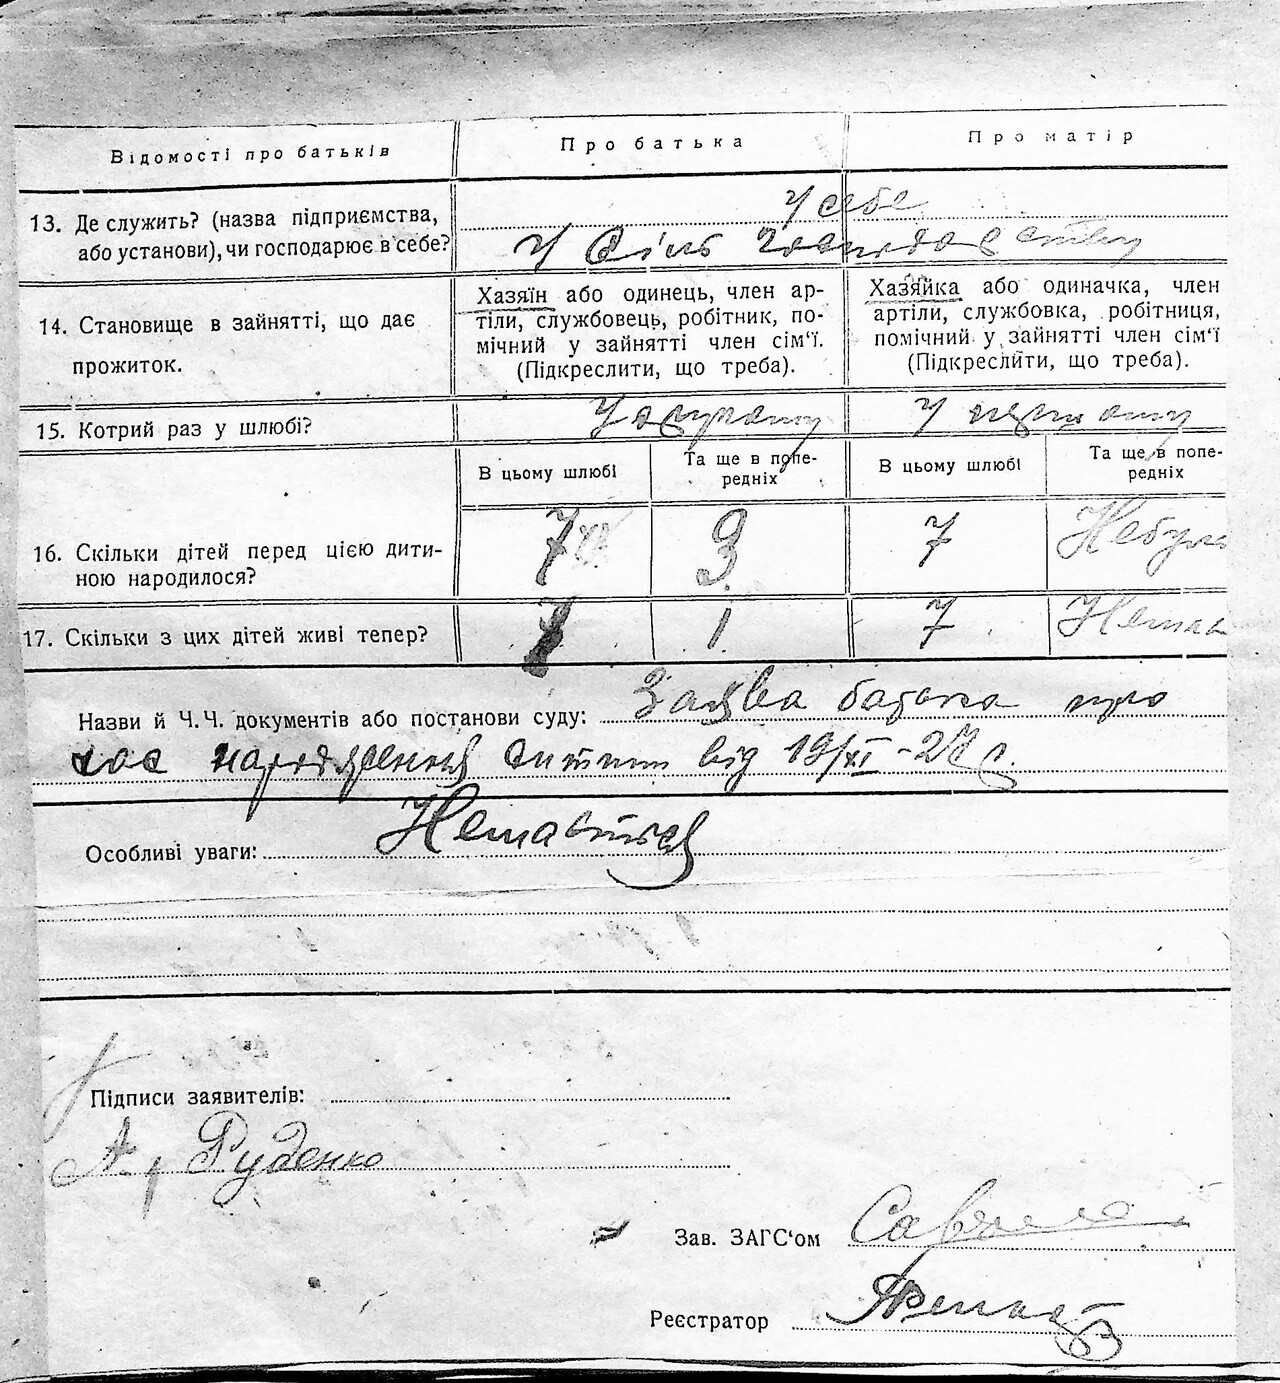 Відомості про батьків
Про батька
Про матір
13. Де служить? (назва підприємства,
або установи), чи господарює в себе?
У себе
У Сільгосподарству
14. Становище в зайнятті, що дає
прожиток.
Хазяїн або одинець, член ар-
тіли, службовець, робітник, по-
мічний у зайнятті член сім'ї.
(Підкреслити, що треба).
Хазяйка або одиначка, член
артіли, службовка, робітниця,
помічний у зайнятті член сім'ї
(Підкреслити, що треба).
15. Котрий раз у шлюбі?
У другому
У первому
В цьому шлюбі
Та ще в попе-
редніх
В цьому шлюбі
Та ще в попе-
редніх
16. Скільки дітей перед цією дити-
ною народилося?
7
3
7
Небуло
17. Скільки з цих дітей живі тепер?
7
1
7
Немає
Назви й Ч.Ч. документів або постанови суду: Заява батька про
час народження дитини від 19/XI-27 р.
Особливі уваги: Немається
Підписи заявителів:
А. Руденко
Зав. ЗАГС'ом
Реєстратор